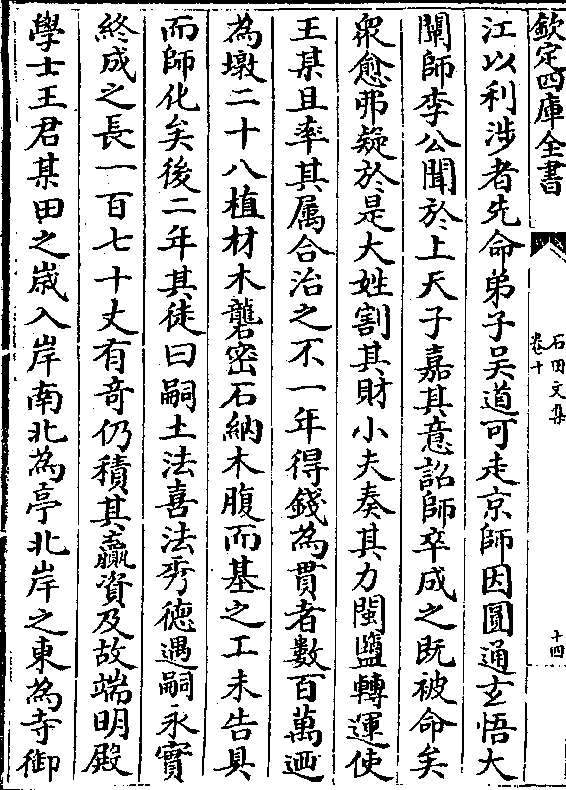 欽定四庫全書
石田文集
卷十
十四
江以利涉者先命弟子吳道可走京師因圓通玄悟大
闡師李公聞於上天子嘉其意詔師卒成之既被命矣
衆愈弗疑於是大姓割其財小夫奏其力閩鹽轉運使
王某且率其屬合治之不一年得錢為貫者數百萬迺
為墩二十八植材木礱密石納木腹而基之工未告具
而師化矣後二年其徒曰嗣土法喜法秀德遇嗣永實
終成之長一百七十丈有奇仍積其贏資及故端明殿
學士王君某田之歲入岸南北為亭北岸之東為寺御